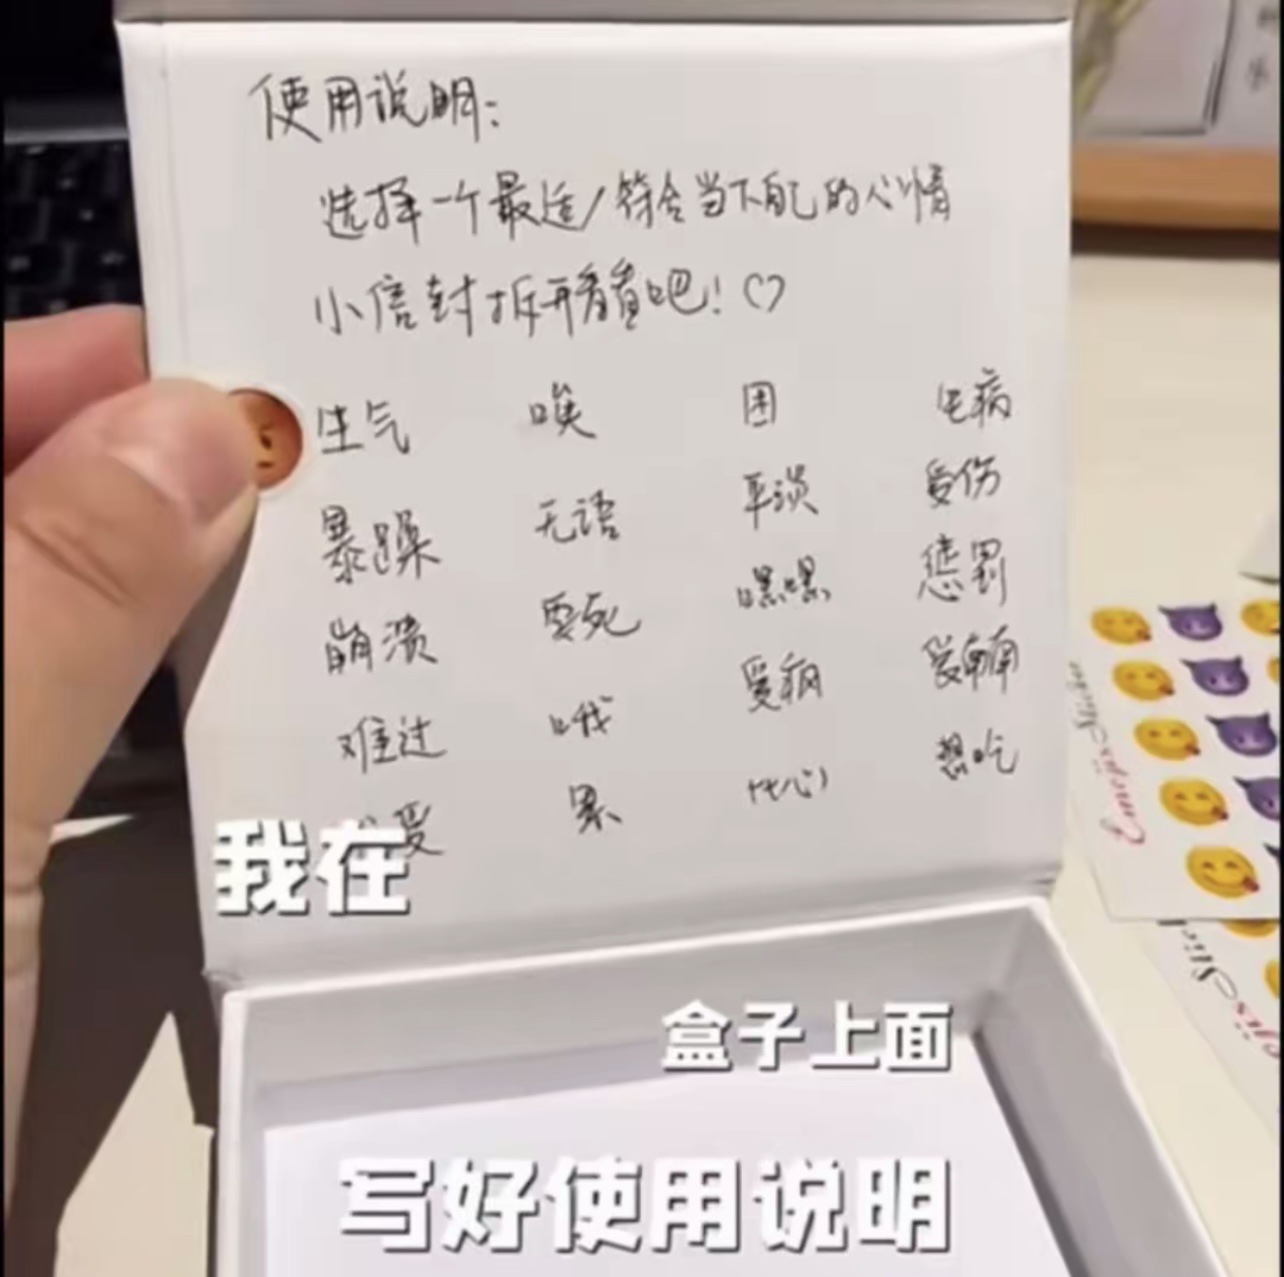 使用说明：
选择一个最适/符合当下自己的心情
小信封拆开看看吧！♡
生气 唉 困 生病
暴躁 无语 平淡 受伤
崩溃 要死 嘿嘿 惩罚
难过 哦 爱病
累 忧心 想吃
我在
盒子上面
写好使用说明
Emojis Sticker